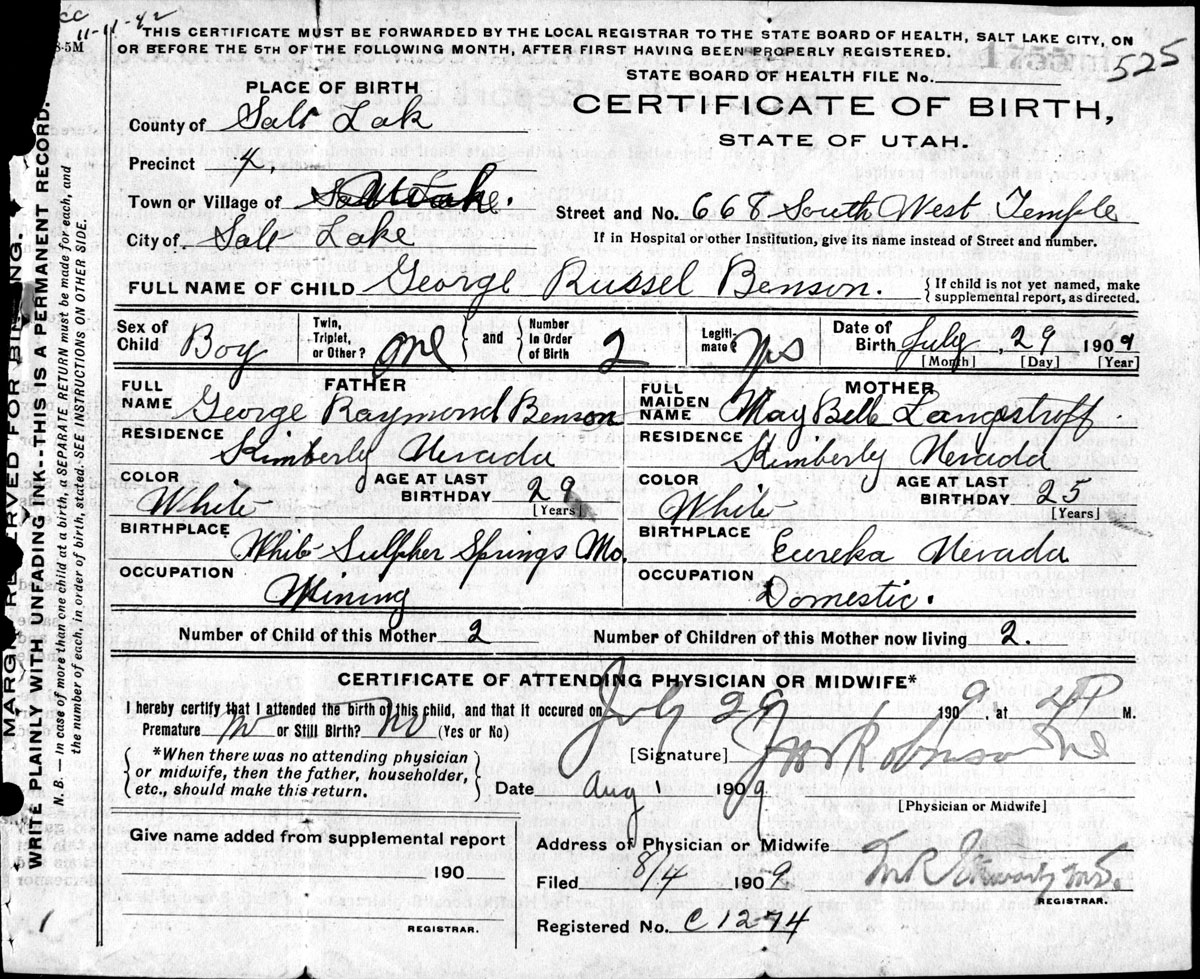 cc
11-11-42
8-5M
THIS CERTIFICATE MUST BE FORWARDED BY THE LOCAL REGISTRAR TO THE STATE BOARD OF HEALTH, SALT LAKE CITY, ON
OR BEFORE THE 5TH OF THE FOLLOWING MONTH, AFTER FIRST HAVING BEEN PROPERLY REGISTERED.
STATE BOARD OF HEALTH FILE No. 525
PLACE OF BIRTH
CERTIFICATE OF BIRTH,
STATE OF UTAH.
County of Salt Lak
Precinct 4.
Town or Village of Salt Lake.
Street and No. 668 South West Temple
City of Salt Lake
If in Hospital or other Institution, give its name instead of Street and number.
FULL NAME OF CHILD George Russel Benson.
{If child is not yet named, make
supplemental report, as directed.
Sex of Child Boy
Twin, Triplet, or Other? one
and
Number in Order of Birth 2
Legiti-mate? Yes
Date of Birth July, 29 1909
[Month] [Day] [Year]
FATHER
FULL NAME George Raymond Benson
RESIDENCE Kimberly Nevada
COLOR White
AGE AT LAST BIRTHDAY 29
[Years]
BIRTHPLACE White Sulpher Springs Mo.
OCCUPATION Mining
MOTHER
FULL MAIDEN NAME May Belle Langstroff
RESIDENCE Kimberly Nevada
COLOR White
AGE AT LAST BIRTHDAY 25
[Years]
BIRTHPLACE Eureka Nevada
OCCUPATION Domestic.
Number of Child of this Mother 2
Number of Children of this Mother now living 2.
CERTIFICATE OF ATTENDING PHYSICIAN OR MIDWIFE*
I hereby certify that I attended the birth of this child, and that it occured on July 29 1909, at P M.
Premature No or Still Birth? No (Yes or No)
[Signature] Robinson
*When there was no attending physician
or midwife, then the father, householder,
etc., should make this return.
Date Aug 1 1909
[Physician or Midwife]
Give name added from supplemental report
190
REGISTRAR.
Address of Physician or Midwife
Filed 8/4 1909
REGISTRAR.
Registered No. C 1274
MARGIN RESERVED FOR BINDING
WRITE PLAINLY WITH UNFADING INK--THIS IS A PERMANENT RECORD.
N. B. — In case of more than one child at a birth, a SEPARATE RETURN must be made for each, and
the number of each, in order of birth, stated. SEE INSTRUCTIONS ON OTHER SIDE.
1